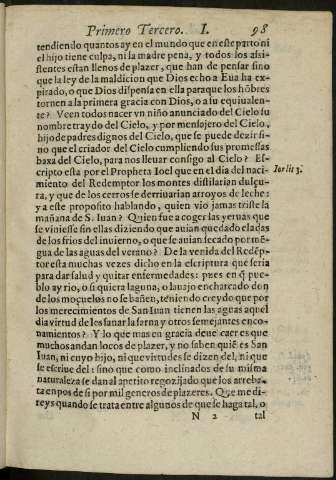 Primero Tercero. I. 98
tendiendo quantos ay en el mundo que en este parto ni
el hijo tiene culpa, ni la madre pena, y todos los asis-
stentes estan llenos de plazer, que han de pensar sino
que la ley de la maldicion que Dios echo a Eua ha ex-
pirado, o que Dios dispensa en ella para que los hõbres
tornen a la primera gracia con Dios, o a su equiualen-
te? Veen todos nacer vn niño anunciado del Cielo su
nombre traydo del Cielo, y por mensajero del Cielo,
hijo de padres dignos del Cielo, que se puede dezir si
no que el criador del Cielo cumpliendo sus promessas
baxa del Cielo, para nos lleuar consigo al Cielo? Es-
cripto esta por el Propheta Ioel que en el dia del naci-
miento del Redemptor los montes distilarian dulçu-
ra, y que de los cerros se derriuarian arroyos de leche:
y a este proposito hablando, quien vio jamas triste la
mañana de S. Iuan? Quien fue a coger las yeruas que
se viniesse sin ellas diziendo que auian quedado eladas
de los frios del inuierno, o que se auian secado por mẽ-
gua de las aguas del verano? De la venida del Redẽp-
tor esta muchas vezes dicho en la escriptura que seria
para dar salud y quitar enfermedades: pues en q̃ pue-
blo ay rio, o si quiera laguna, o lauajo encharcado don
de los moçuelos no se bañen, teniendo creydo que por
los merecimientos de San Iuan tienen las aguas aquel
dia virtud de les sanar la sarna y otros semejantes enco-
namientos? Y lo que mas en gracia deue caer es que
muchos andan locos de plazer, y no saben quiẽ es San
Iuan, ni cuyo hijo, ni que virtudes se dizen del, ni que
se escriue del: sino que como inclinados de su misma
naturaleza se dan al apetito regozijado que los arreba-
ta en pos de si por mil generos de plazeres. Que me di-
reys quando se trata entre algunos de que se haga tal, o
N 2 tal